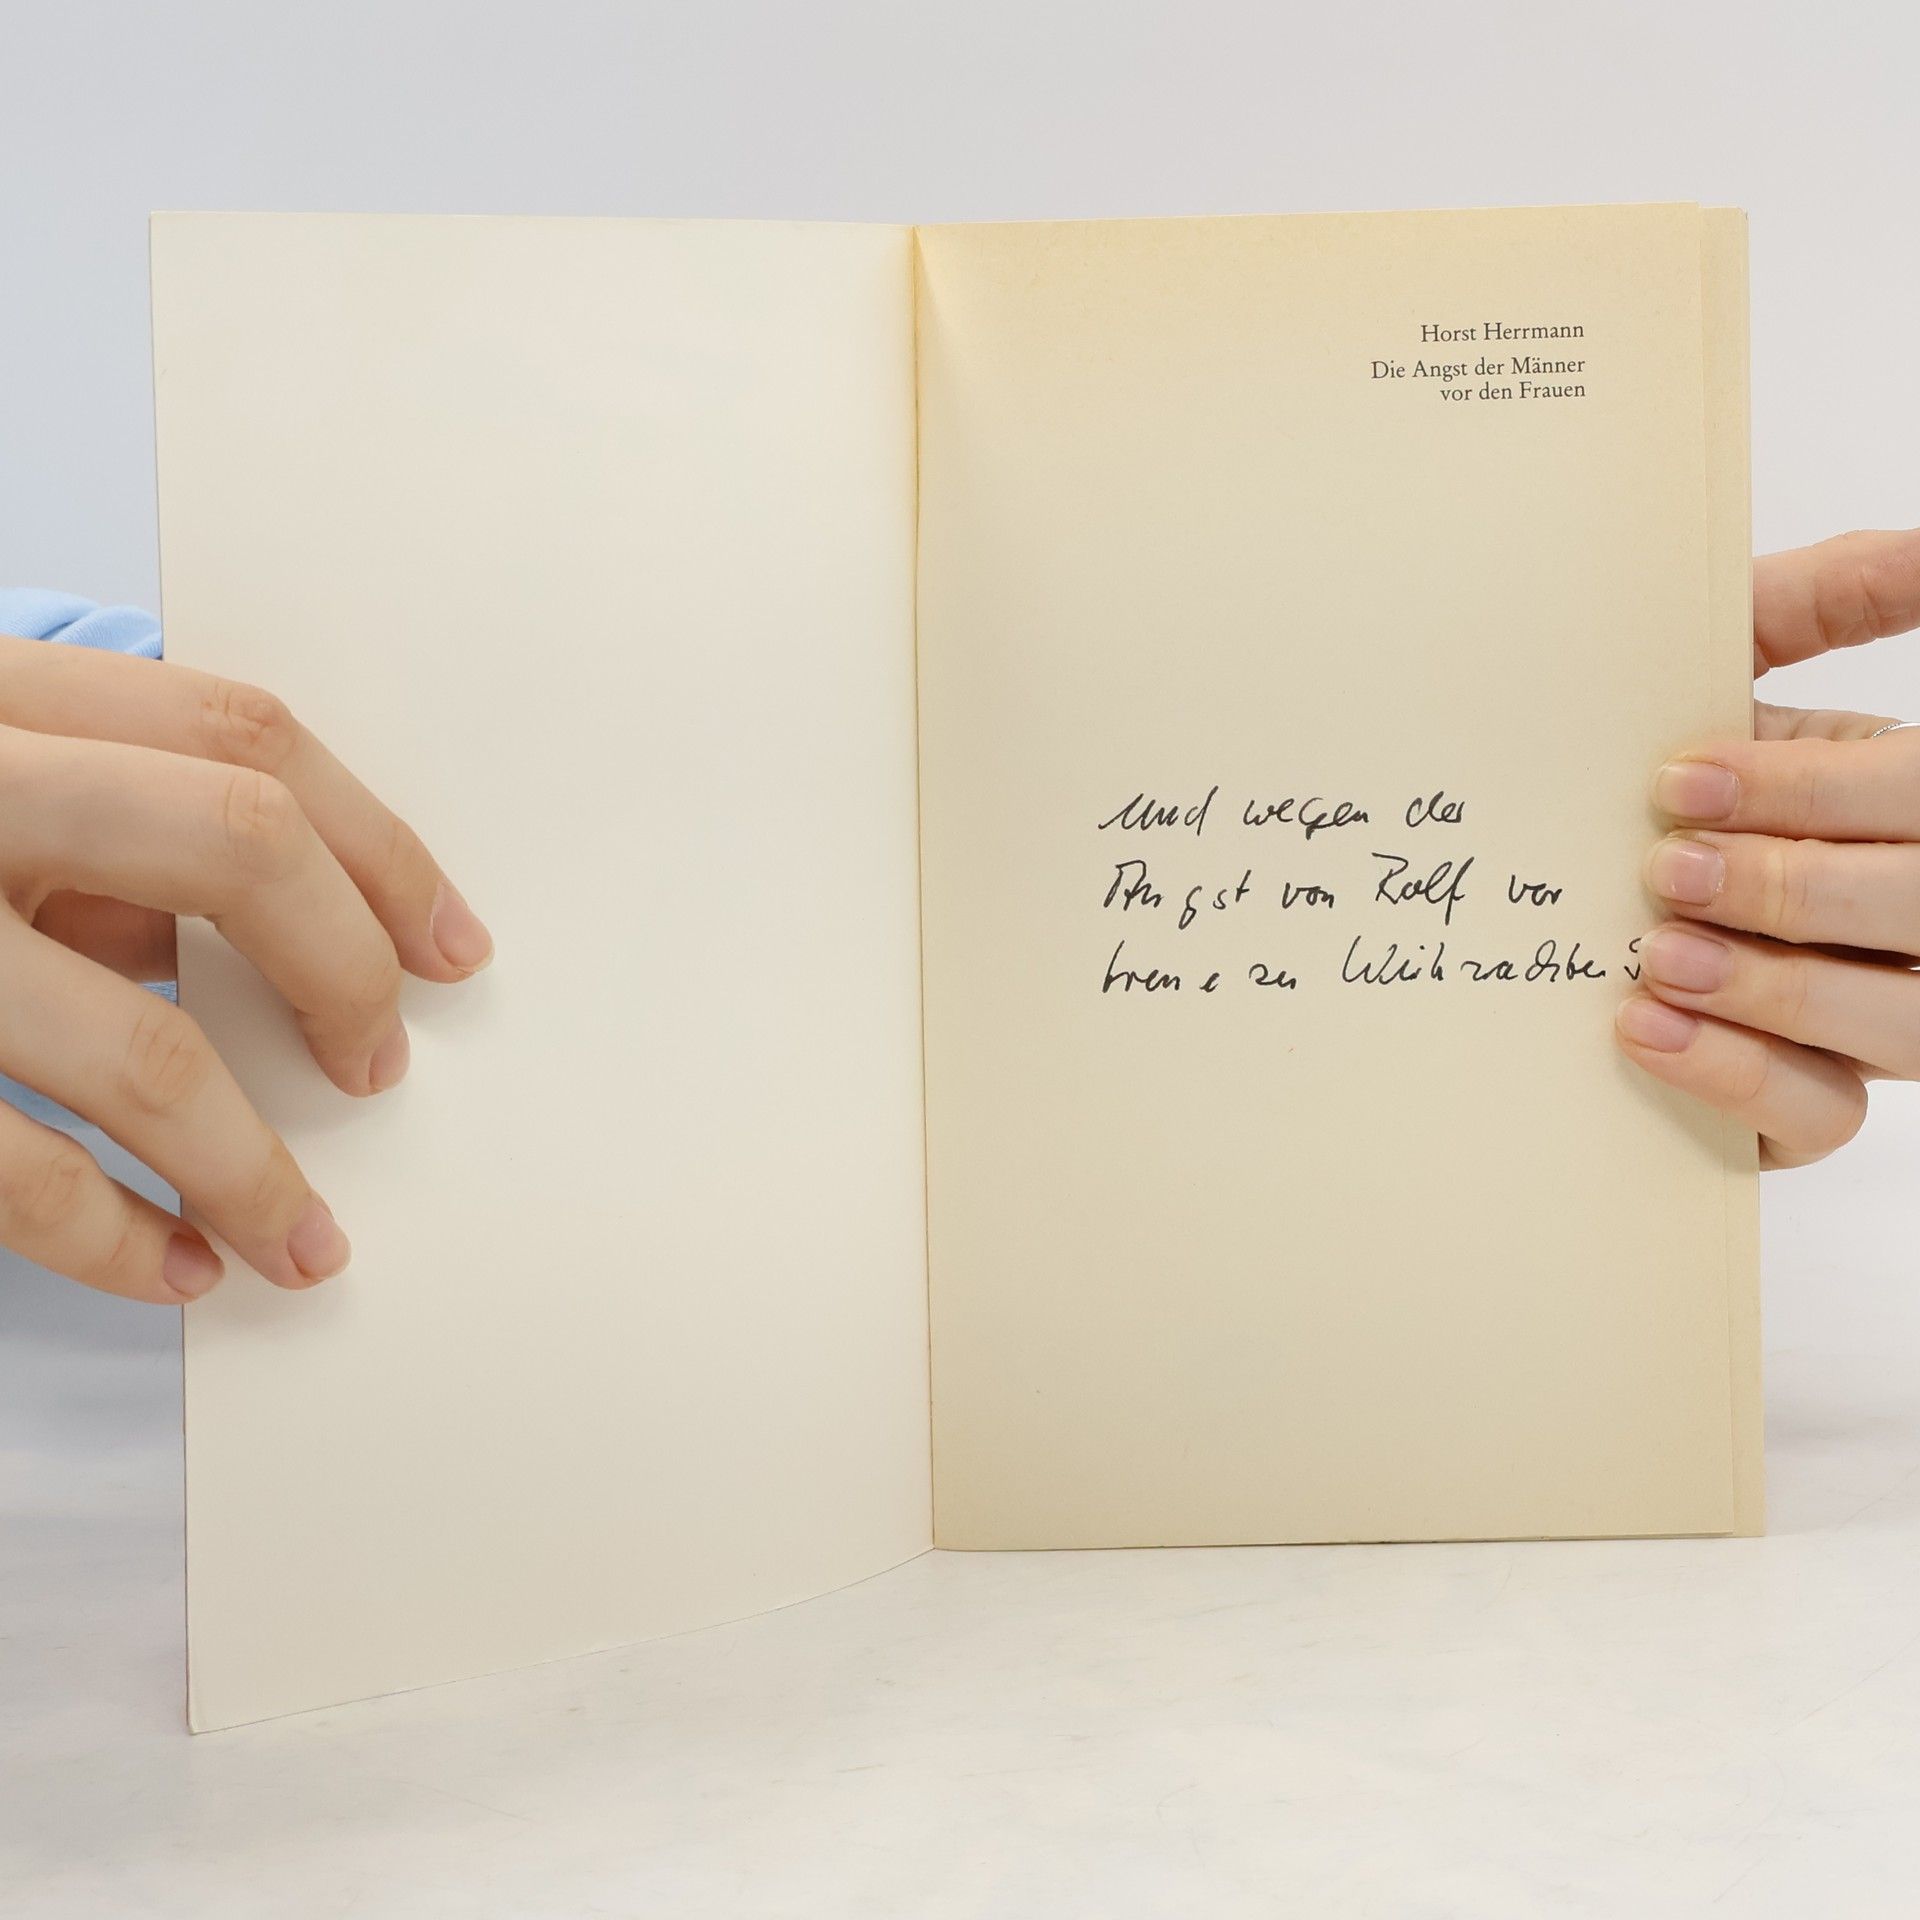 Horst Herrmann
Die Angst der Männer
vor den Frauen
und wegen der
Angst von Rolf vor
zu Weihnachten